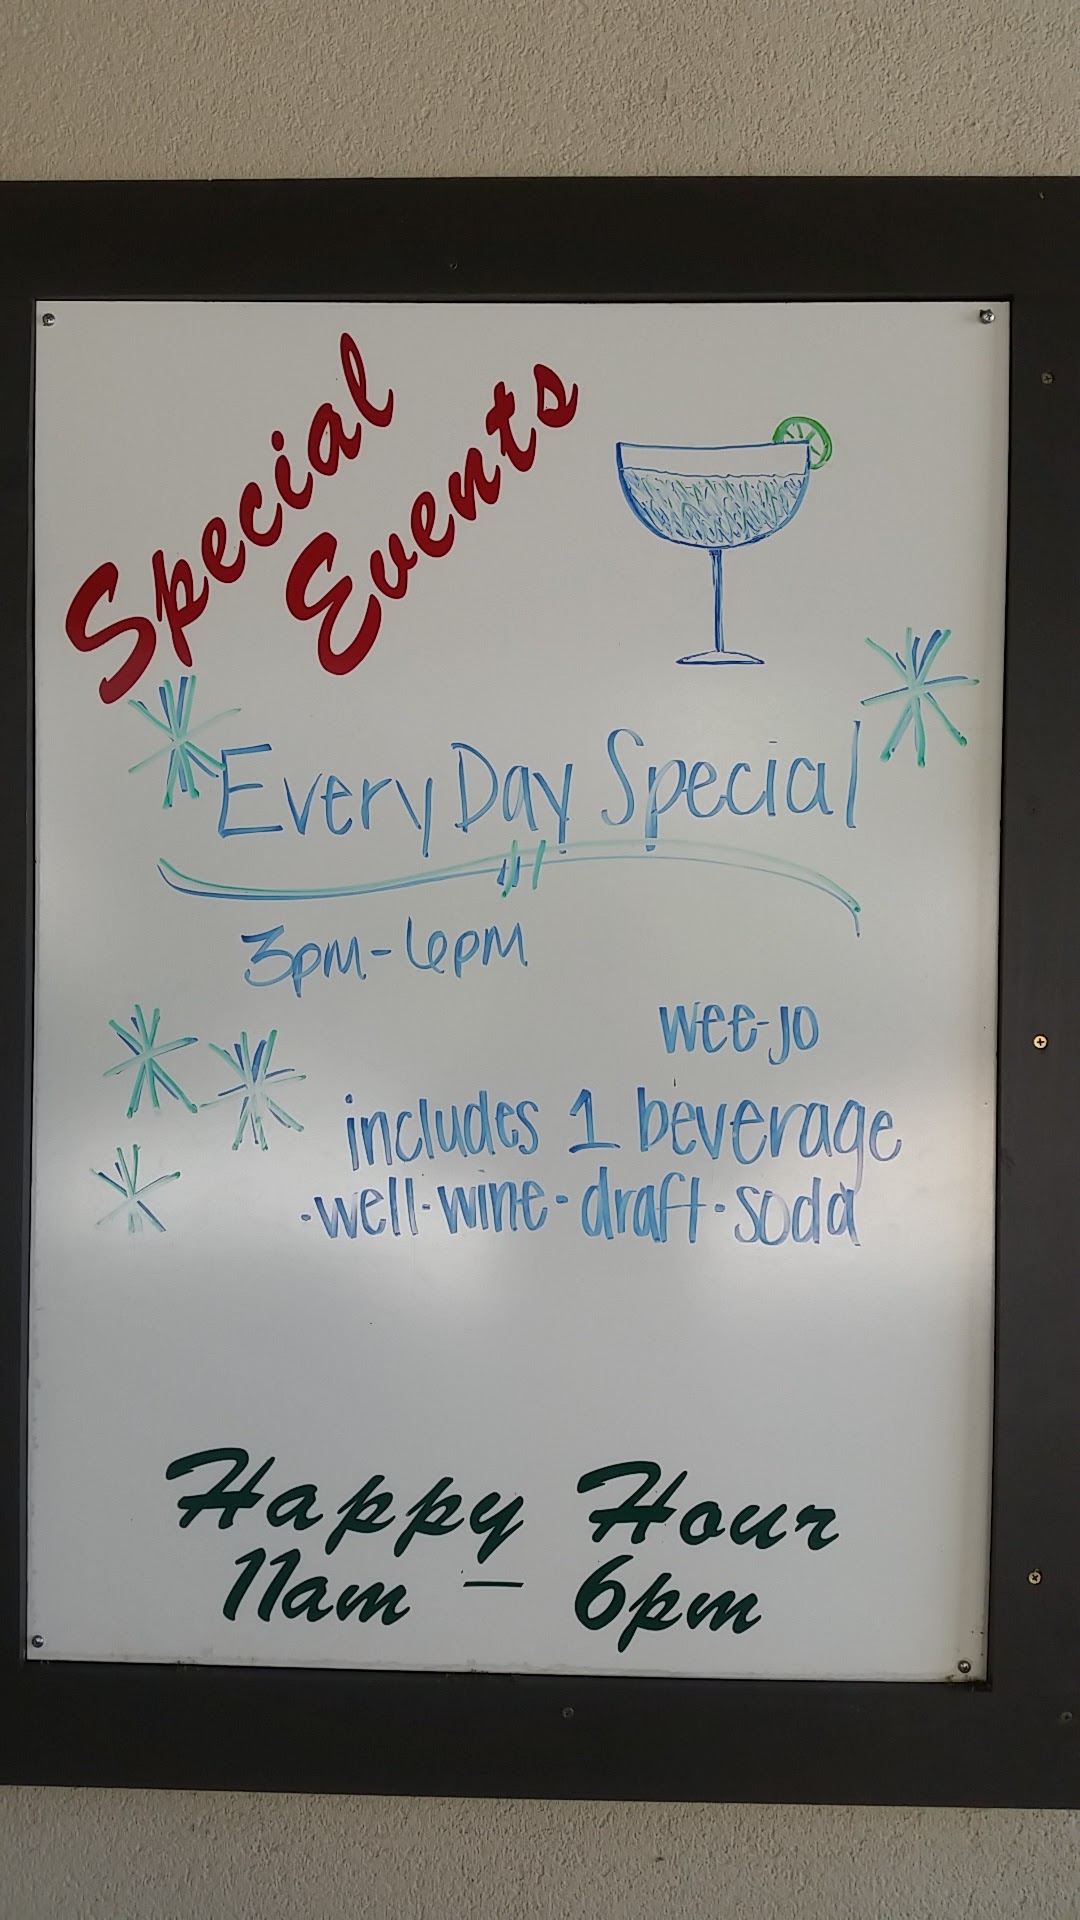 Special
Events
EveryDay Special
3pm-6pm
wee-jo
includes 1 beverage
·well·wine·draft·soda
Happy Hour
11am — 6pm